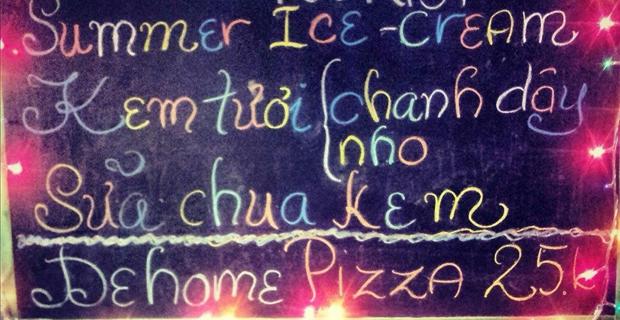 Summer Ice-cream
Kem tươi { chanh dây
nho
Sữa chua kem
Dehome Pizza 25.k